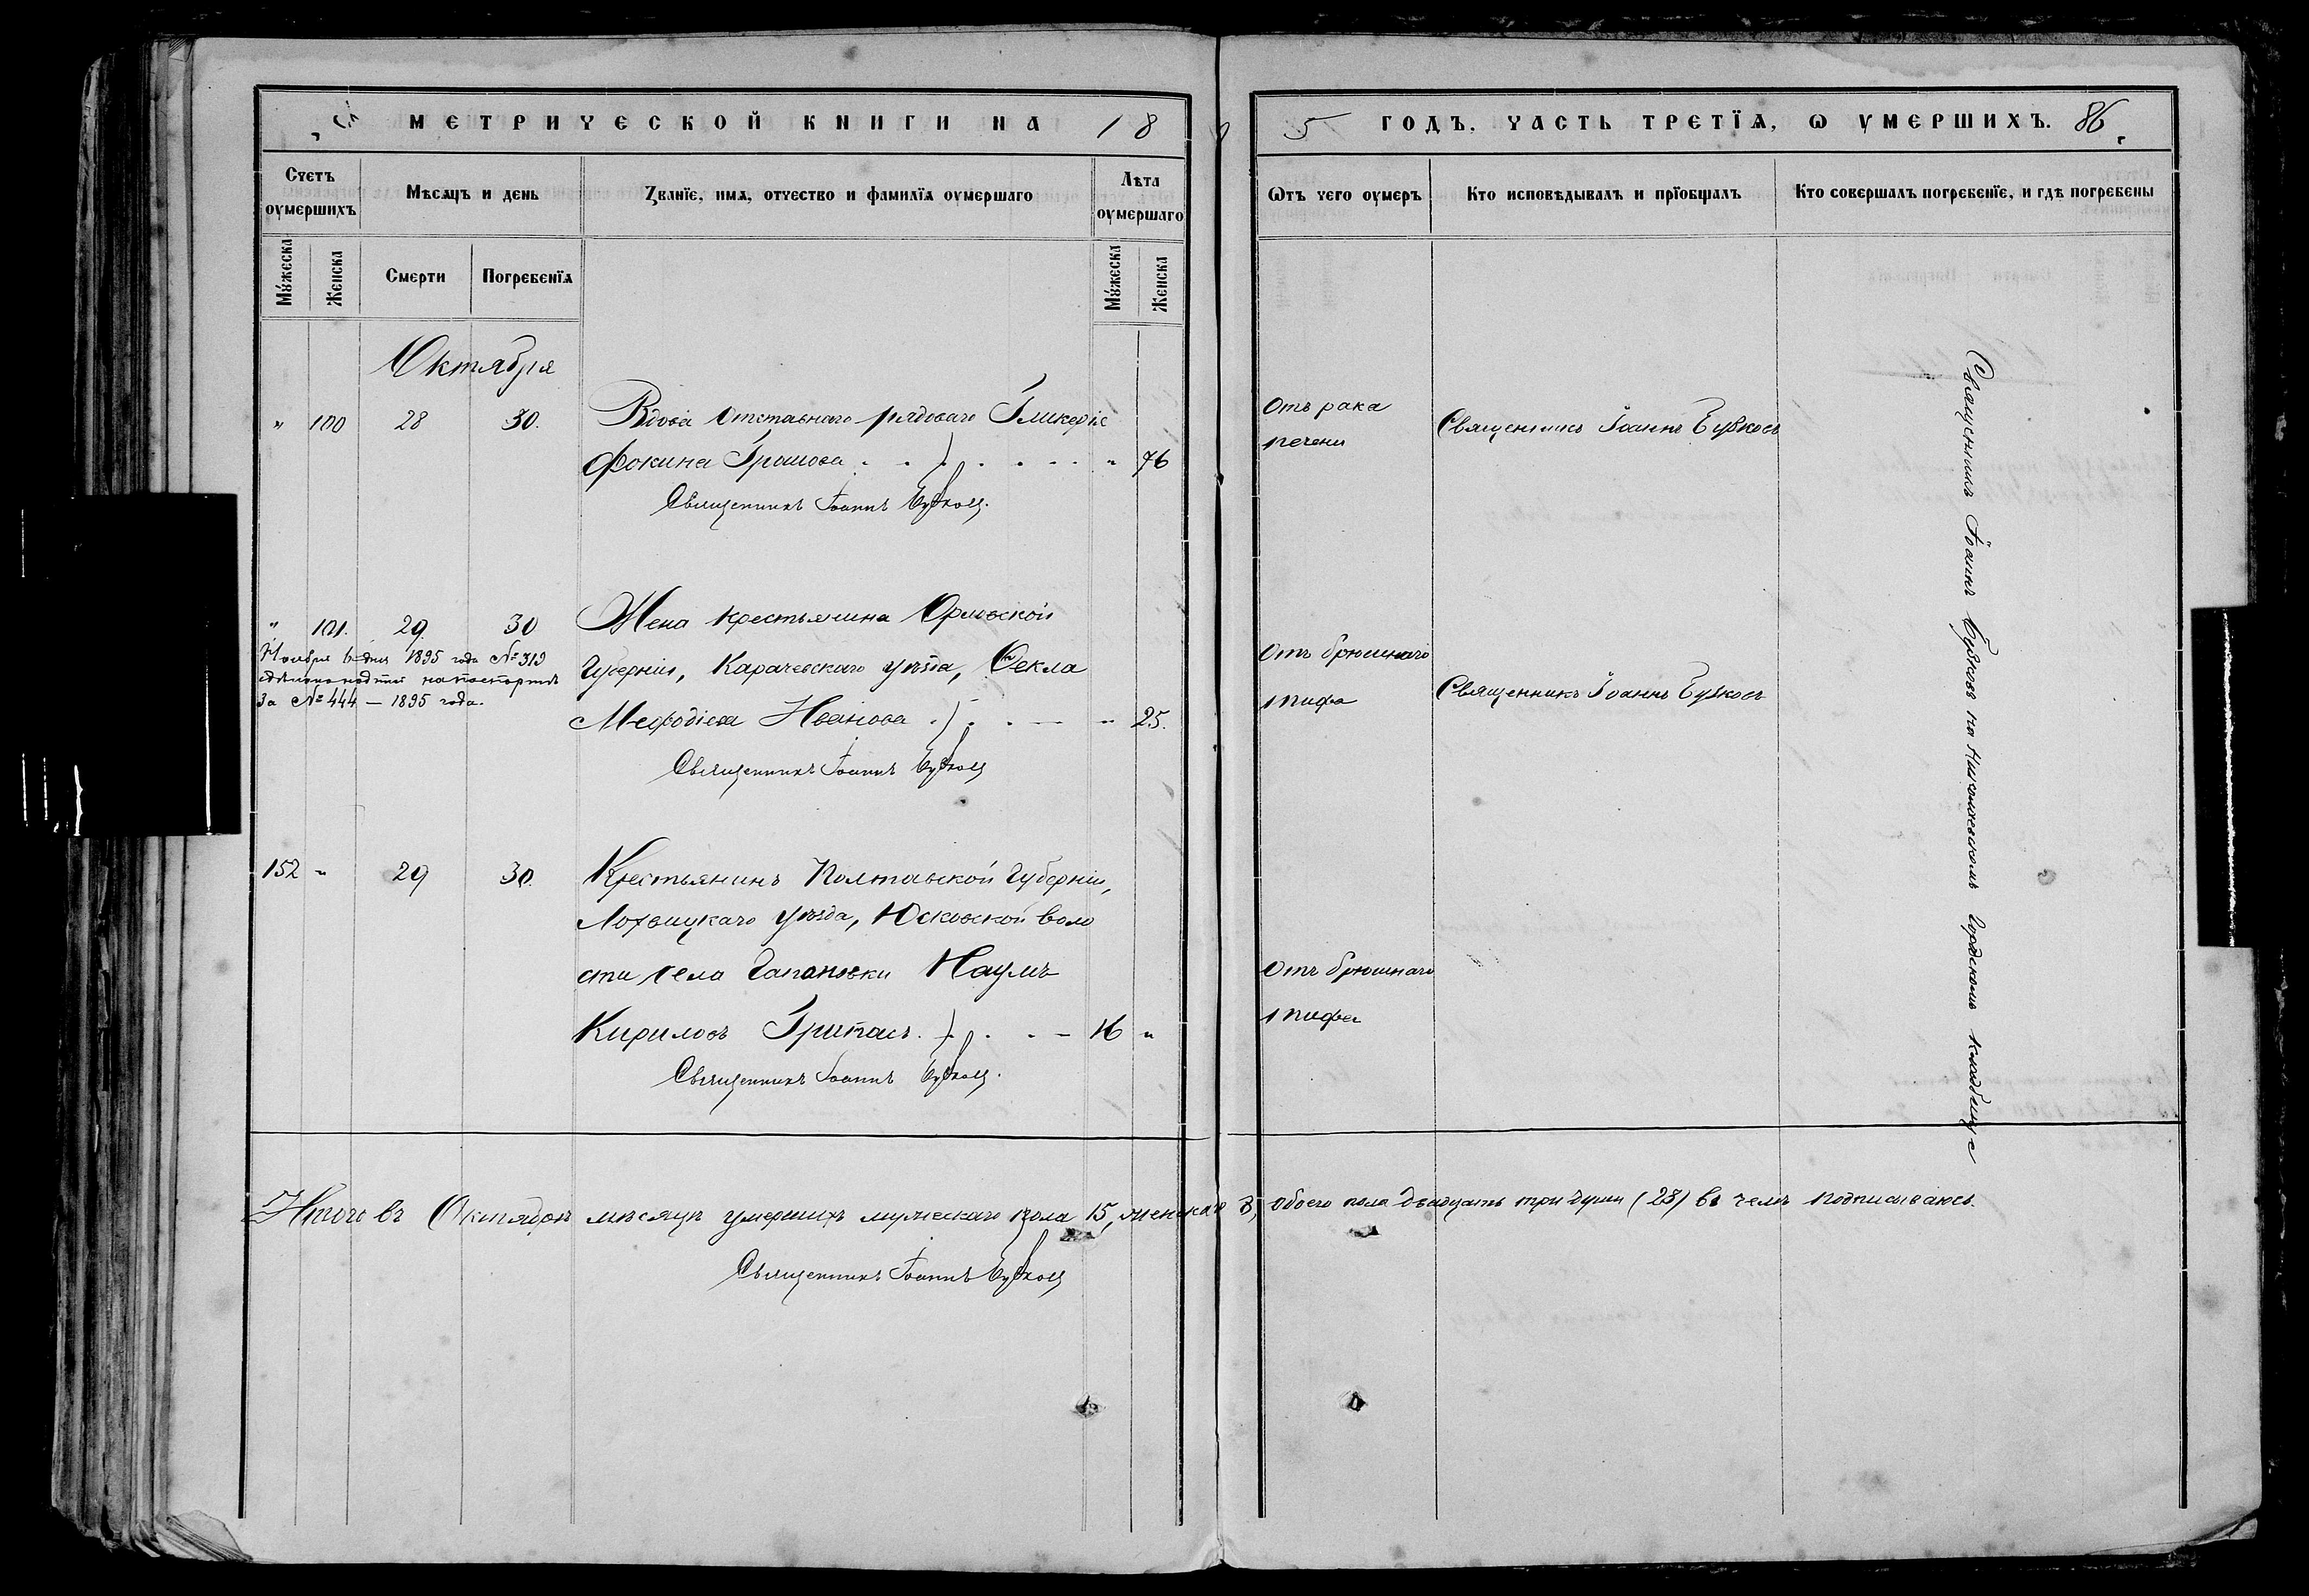 МЕТРИЧЕСКОЙ КНИГИ НА 18
5 ГОДЪ, ЧАСТЬ ТРЕТЇѦ, Ѡ УМЕРШИХЪ. 86
Счетъ оумершихъ
Мѣсяцъ и день
Званїе, имѧ, отчество и фамилїѧ оумершаго
Лѣта оумершаго
Ѿтъ чего оумеръ
Кто исповѣдывалъ и прїобщалъ
Кто совершалъ погребенїе, и гдѣ погребены
Мужеска
Женска
Смерти
Погребенїѧ
Мужеска
Женска
Октября
" 100 28 30. Вдова отставнаго рядоваго Гликерія
Фокина Грошова " 76
Священникъ Іоаннъ Бубковъ.
Отъ рака
печени
Священникъ Іоаннъ Бубковъ
" 101. 29. 30 Жена крестьянина Орловской
Губерніи, Карачевскаго уѣзда, Ѳекла
Мефодіева Иванова " 25.
Священникъ Іоаннъ Бубковъ
Ноября 6 дня 1895 года № 319
на паспортѣ
За № 444 — 1895 года.
Отъ брюшнаго
тифа
Священникъ Іоаннъ Бубковъ
152 " 29 30. Крестьянинъ Полтавской Губерніи,
Лохвицкаго уѣзда, Юсковской воло
сти села Гапоновки Наумъ
Кириловъ Грипасъ. 16 "
Священникъ Іоаннъ Бубковъ.
Отъ брюшнаго
тифа
Священникъ Іоаннъ Бубковъ на Николаевскомъ Городскомъ кладбище
Итого въ Октябрѣ мѣсяцѣ умершихъ мужескаго пола 15, женскаго 8, обоего пола двадцать три души (23) въ чемъ подписываюсь.
Священникъ Іоаннъ Бубковъ